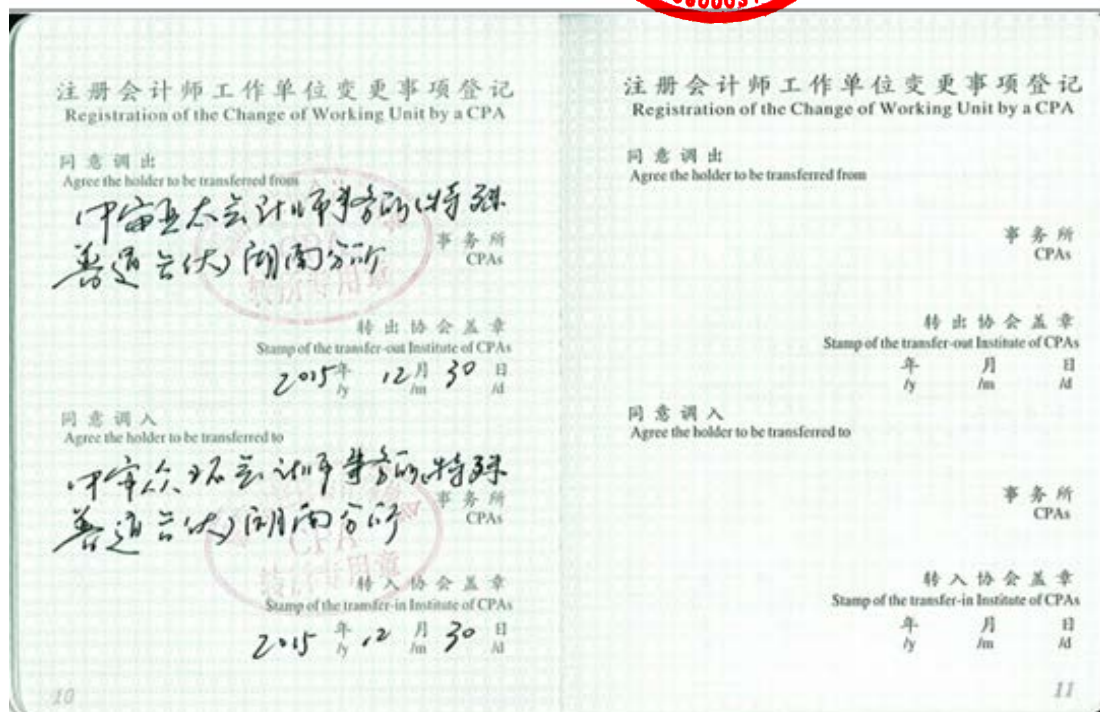 注册会计师工作单位变更事项登记
Registration of the Change of Working Unit by a CPA
同意调出
Agree the holder to be transferred from
中审亚太会计师事务所(特殊
普通合伙)湖南分所
事务所
CPAs
转出协会盖章
Stamp of the transfer-out Institute of CPAs
2015年 12月 30日
/y /m /d
同意调入
Agree the holder to be transferred to
中审众环会计师事务所(特殊
普通合伙)湖南分所
事务所
CPAs
转入协会盖章
Stamp of the transfer-in Institute of CPAs
2015年 12月 30日
/y /m /d
10
注册会计师工作单位变更事项登记
Registration of the Change of Working Unit by a CPA
同意调出
Agree the holder to be transferred from
事务所
CPAs
转出协会盖章
Stamp of the transfer-out Institute of CPAs
年 月 日
/y /m /d
同意调入
Agree the holder to be transferred to
事务所
CPAs
转入协会盖章
Stamp of the transfer-in Institute of CPAs
年 月 日
/y /m /d
11